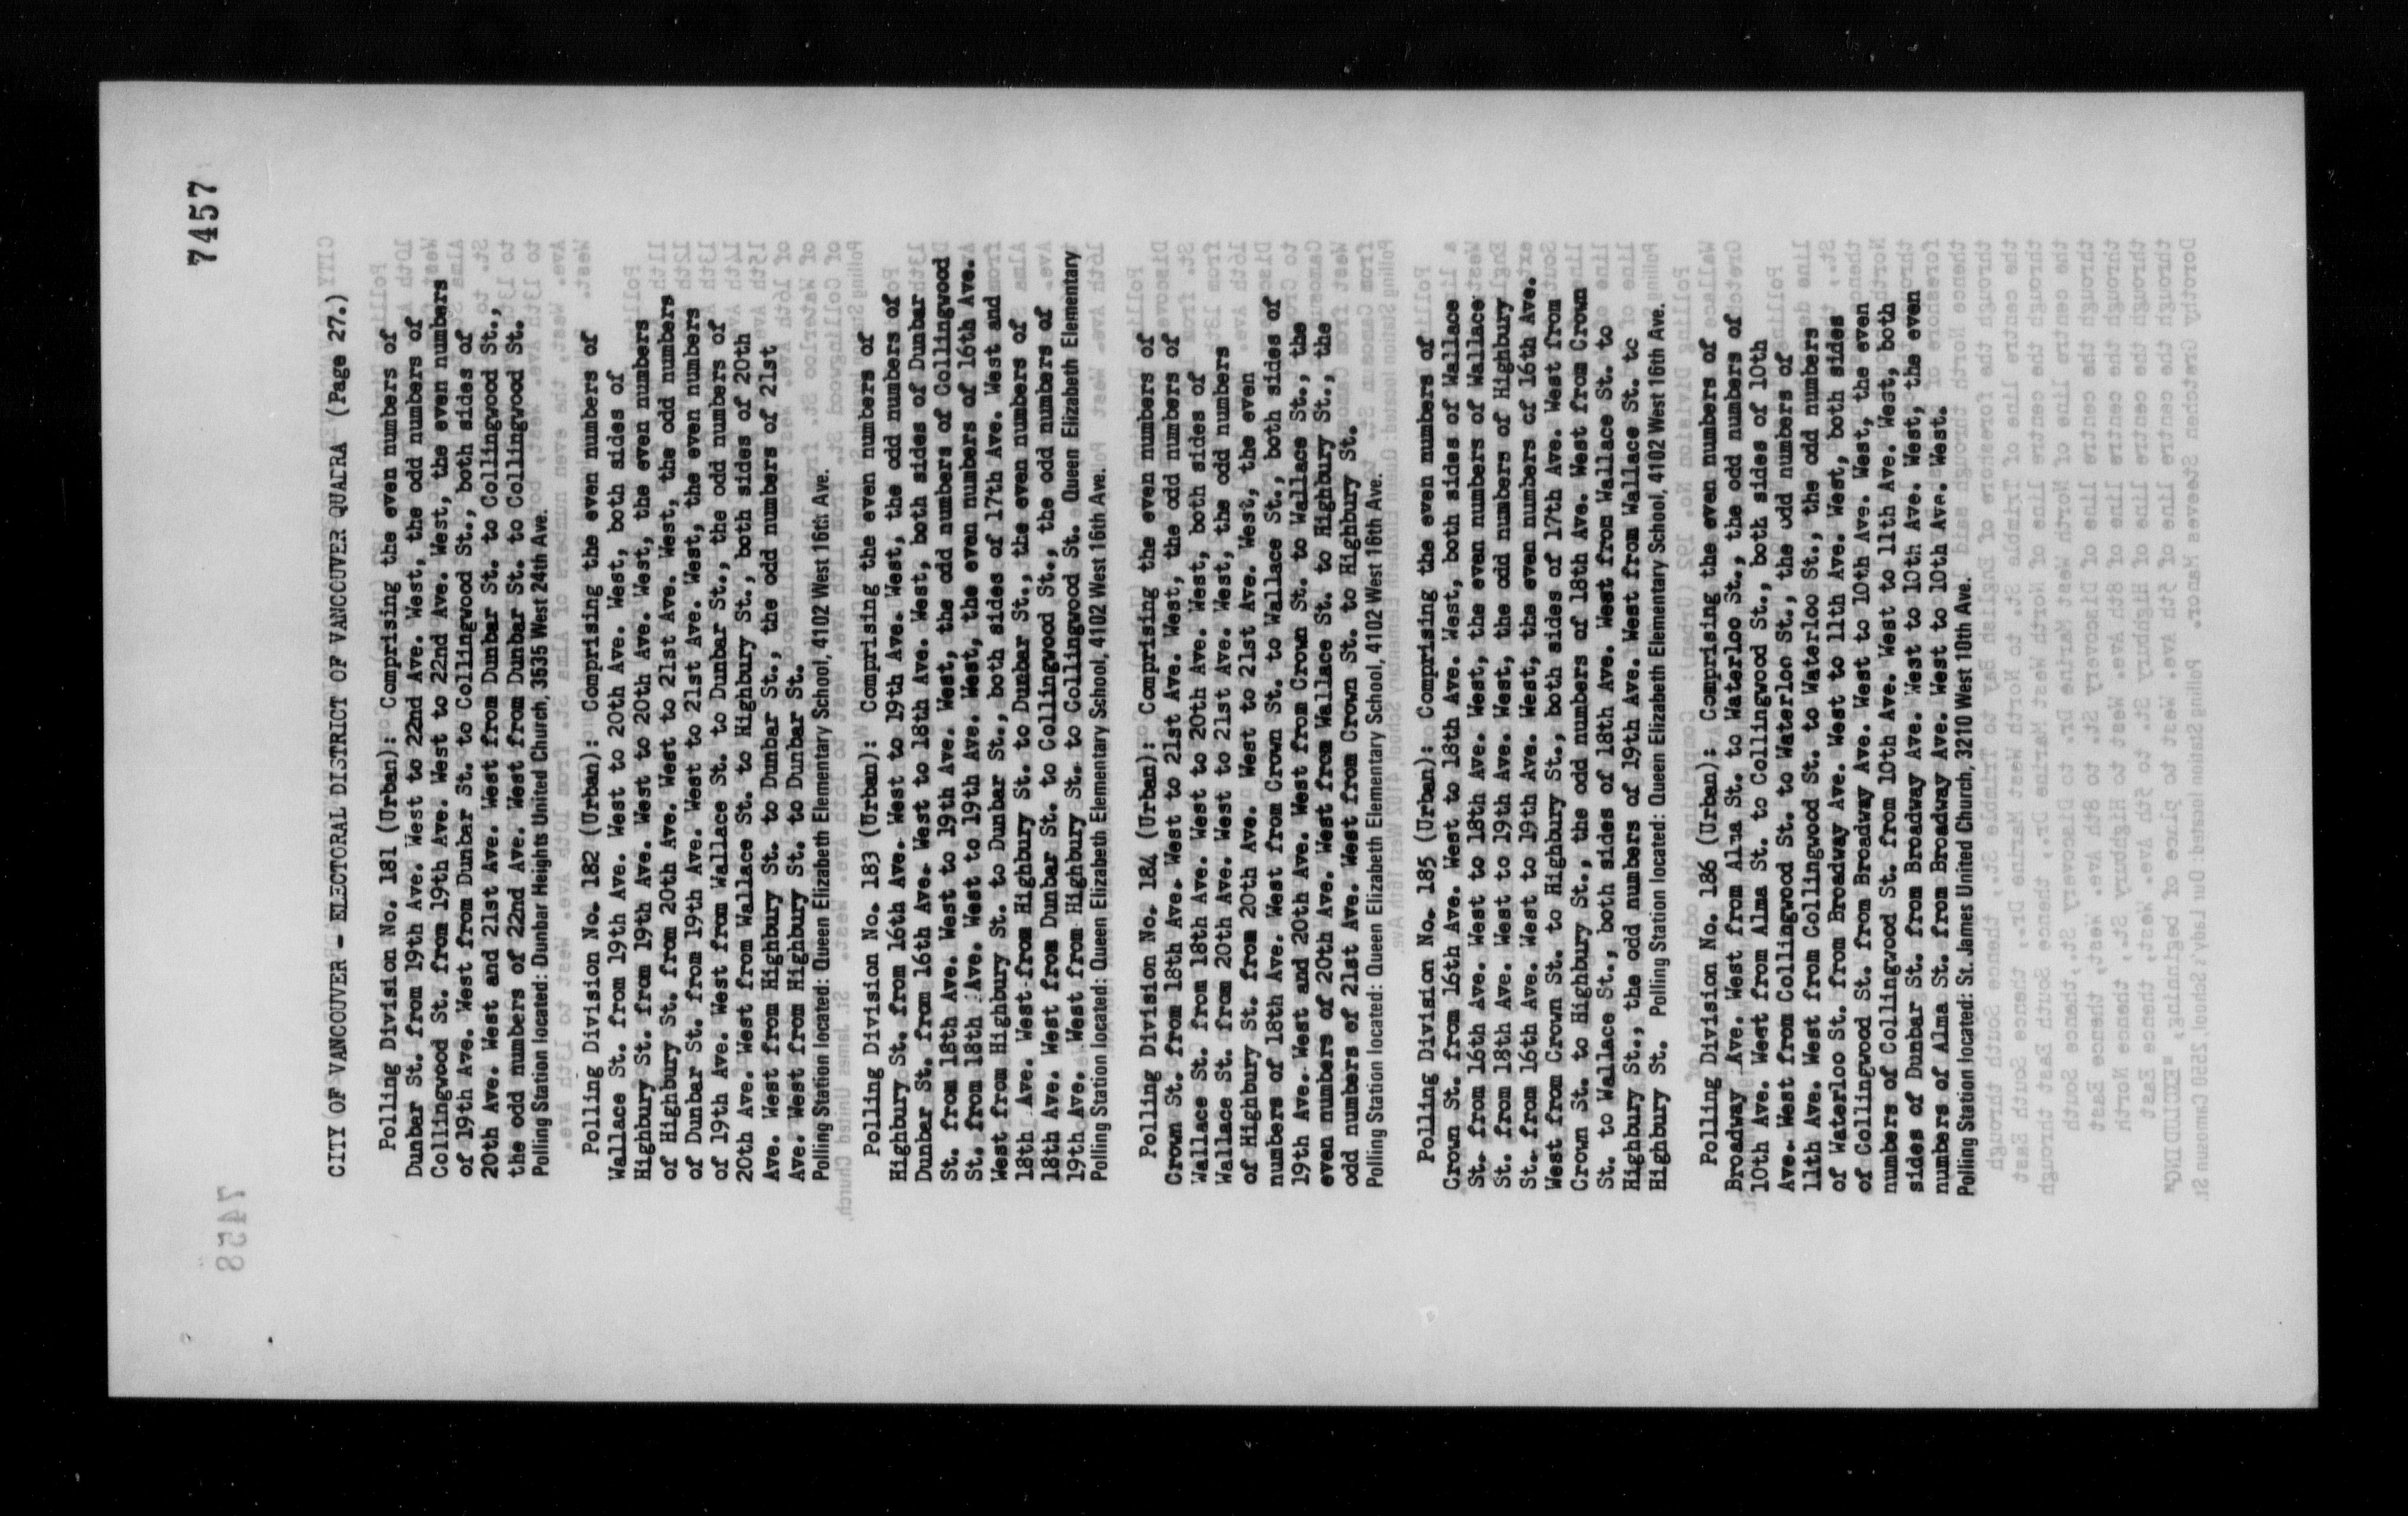 74457
CITY OF VANCOUVER - ELECTORAL DISTRICT OF VANCOUVER QUADRA (Page 27.)
Polling Division No. 181 (Urban): Comprising the even numbers of
Dunbar St. from 19th Ave. West to 22nd Ave. West, the odd numbers of
Collingwood St. from 19th Ave. West to 22nd Ave. West, the even numbers
of 19th Ave. West from Dunbar St. to Collingwood St., both sides of
20th Ave. West and 21st Ave. West from Dunbar St. to Collingwood St.,
the odd numbers of 22nd Ave. West from Dunbar St. to Collingwood St.
Polling Station located: Dunbar Heights United Church, 3535 West 24th Ave.
Polling Division No. 182 (Urban): Comprising the even numbers of
Wallace St. from 19th Ave. West to 20th Ave. West, both sides of
Highbury St. from 19th Ave. West to 20th Ave. West, the even numbers
of Highbury St. from 20th Ave. West to 21st Ave. West, the odd numbers
of Dunbar St. from 19th Ave. West to 21st Ave. West, the even numbers
of 19th Ave. West from Wallace St. to Dunbar St., the odd numbers of
20th Ave. West from Wallace St. to Highbury St., both sides of 20th
Ave. West from Highbury St. to Dunbar St., the odd numbers of 21st
Ave. West from Highbury St. to Dunbar St.
Polling Station located: Queen Elizabeth Elementary School, 4102 West 16th Ave.
Polling Division No. 183 (Urban): Comprising the even numbers of
Highbury St. from 16th Ave. West to 19th Ave. West, the odd numbers of
Dunbar St. from 16th Ave. West to 18th Ave. West, both sides of Dunbar
St. from 18th Ave. West to 19th Ave. West, the odd numbers of Collingwood
St. from 18th Ave. West to 19th Ave. West, the even numbers of 16th Ave.
West from Highbury St. to Dunbar St., both sides of 17th Ave. West and
18th Ave. West from Highbury St. to Dunbar St., the even numbers of
18th Ave. West from Dunbar St. to Collingwood St., the odd numbers of
19th Ave. West from Highbury St. to Collingwood St. Queen Elizabeth Elementary
Polling Station located: Queen Elizabeth Elementary School, 4102 West 16th Ave.
Polling Division No. 184 (Urban): Comprising the even numbers of
Crown St. from 18th Ave. West to 21st Ave. West, the odd numbers of
Wallace St. from 18th Ave. West to 20th Ave. West, both sides of
Wallace St. from 20th Ave. West to 21st Ave. West, the odd numbers
of Highbury St. from 20th Ave. West to 21st Ave. West, the even
numbers of 18th Ave. West from Crown St. to Wallace St., both sides of
19th Ave. West and 20th Ave. West from Crown St. to Wallace St., the
even numbers of 20th Ave. West from Wallace St. to Highbury St., the
odd numbers of 21st Ave. West from Crown St. to Highbury St.
Polling Station located: Queen Elizabeth Elementary School, 4102 West 16th Ave.
Polling Division No. 185 (Urban): Comprising the even numbers of
Crown St. from 16th Ave. West to 18th Ave. West, both sides of Wallace
St. from 16th Ave. West to 18th Ave. West, the even numbers of Wallace
St. from 18th Ave. West to 19th Ave. West, the odd numbers of Highbury
St. from 16th Ave. West to 19th Ave. West, the even numbers of 16th Ave.
West from Crown St. to Highbury St., both sides of 17th Ave. West from
Crown St. to Highbury St., the odd numbers of 18th Ave. West from Crown
St. to Wallace St., both sides of 18th Ave. West from Wallace St. to
Highbury St., the odd numbers of 19th Ave. West from Wallace St. to
Highbury St. Polling Station located: Queen Elizabeth Elementary School, 4102 West 16th Ave.
Polling Division No. 186 (Urban): Comprising the even numbers of
Broadway Ave. West from Alma St. to Waterloo St., the odd numbers of
10th Ave. West from Alma St. to Collingwood St., both sides of 10th
Ave. West from Collingwood St. to Waterloo St., the odd numbers of
11th Ave. West from Collingwood St. to Waterloo St., the odd numbers
of Waterloo St. from Broadway Ave. West to 11th Ave. West, both sides
of Collingwood St. from Broadway Ave. West to 10th Ave. West, the even
numbers of Collingwood St. from 10th Ave. West to 11th Ave. West, both
sides of Dunbar St. from Broadway Ave. West to 10th Ave. West, the even
numbers of Alma St. from Broadway Ave. West to 10th Ave. West.
Polling Station located: St. James United Church, 3210 West 10th Ave.